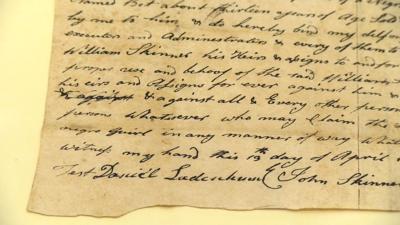 named Bet about thirteen years of Age Sold
by me to him, & do hereby bind my self
executors and Administrators & every of them to
William Skinner his Heirs & assigns to and for
proper use and behoof of the said William
his eirs and Assigns for ever against him &
& against all & Every other person
persons Whatsoever who may Claim the
negro Guirl in any manner of way what
witness my hand this 13th day of April
Test Daniel John Skinner